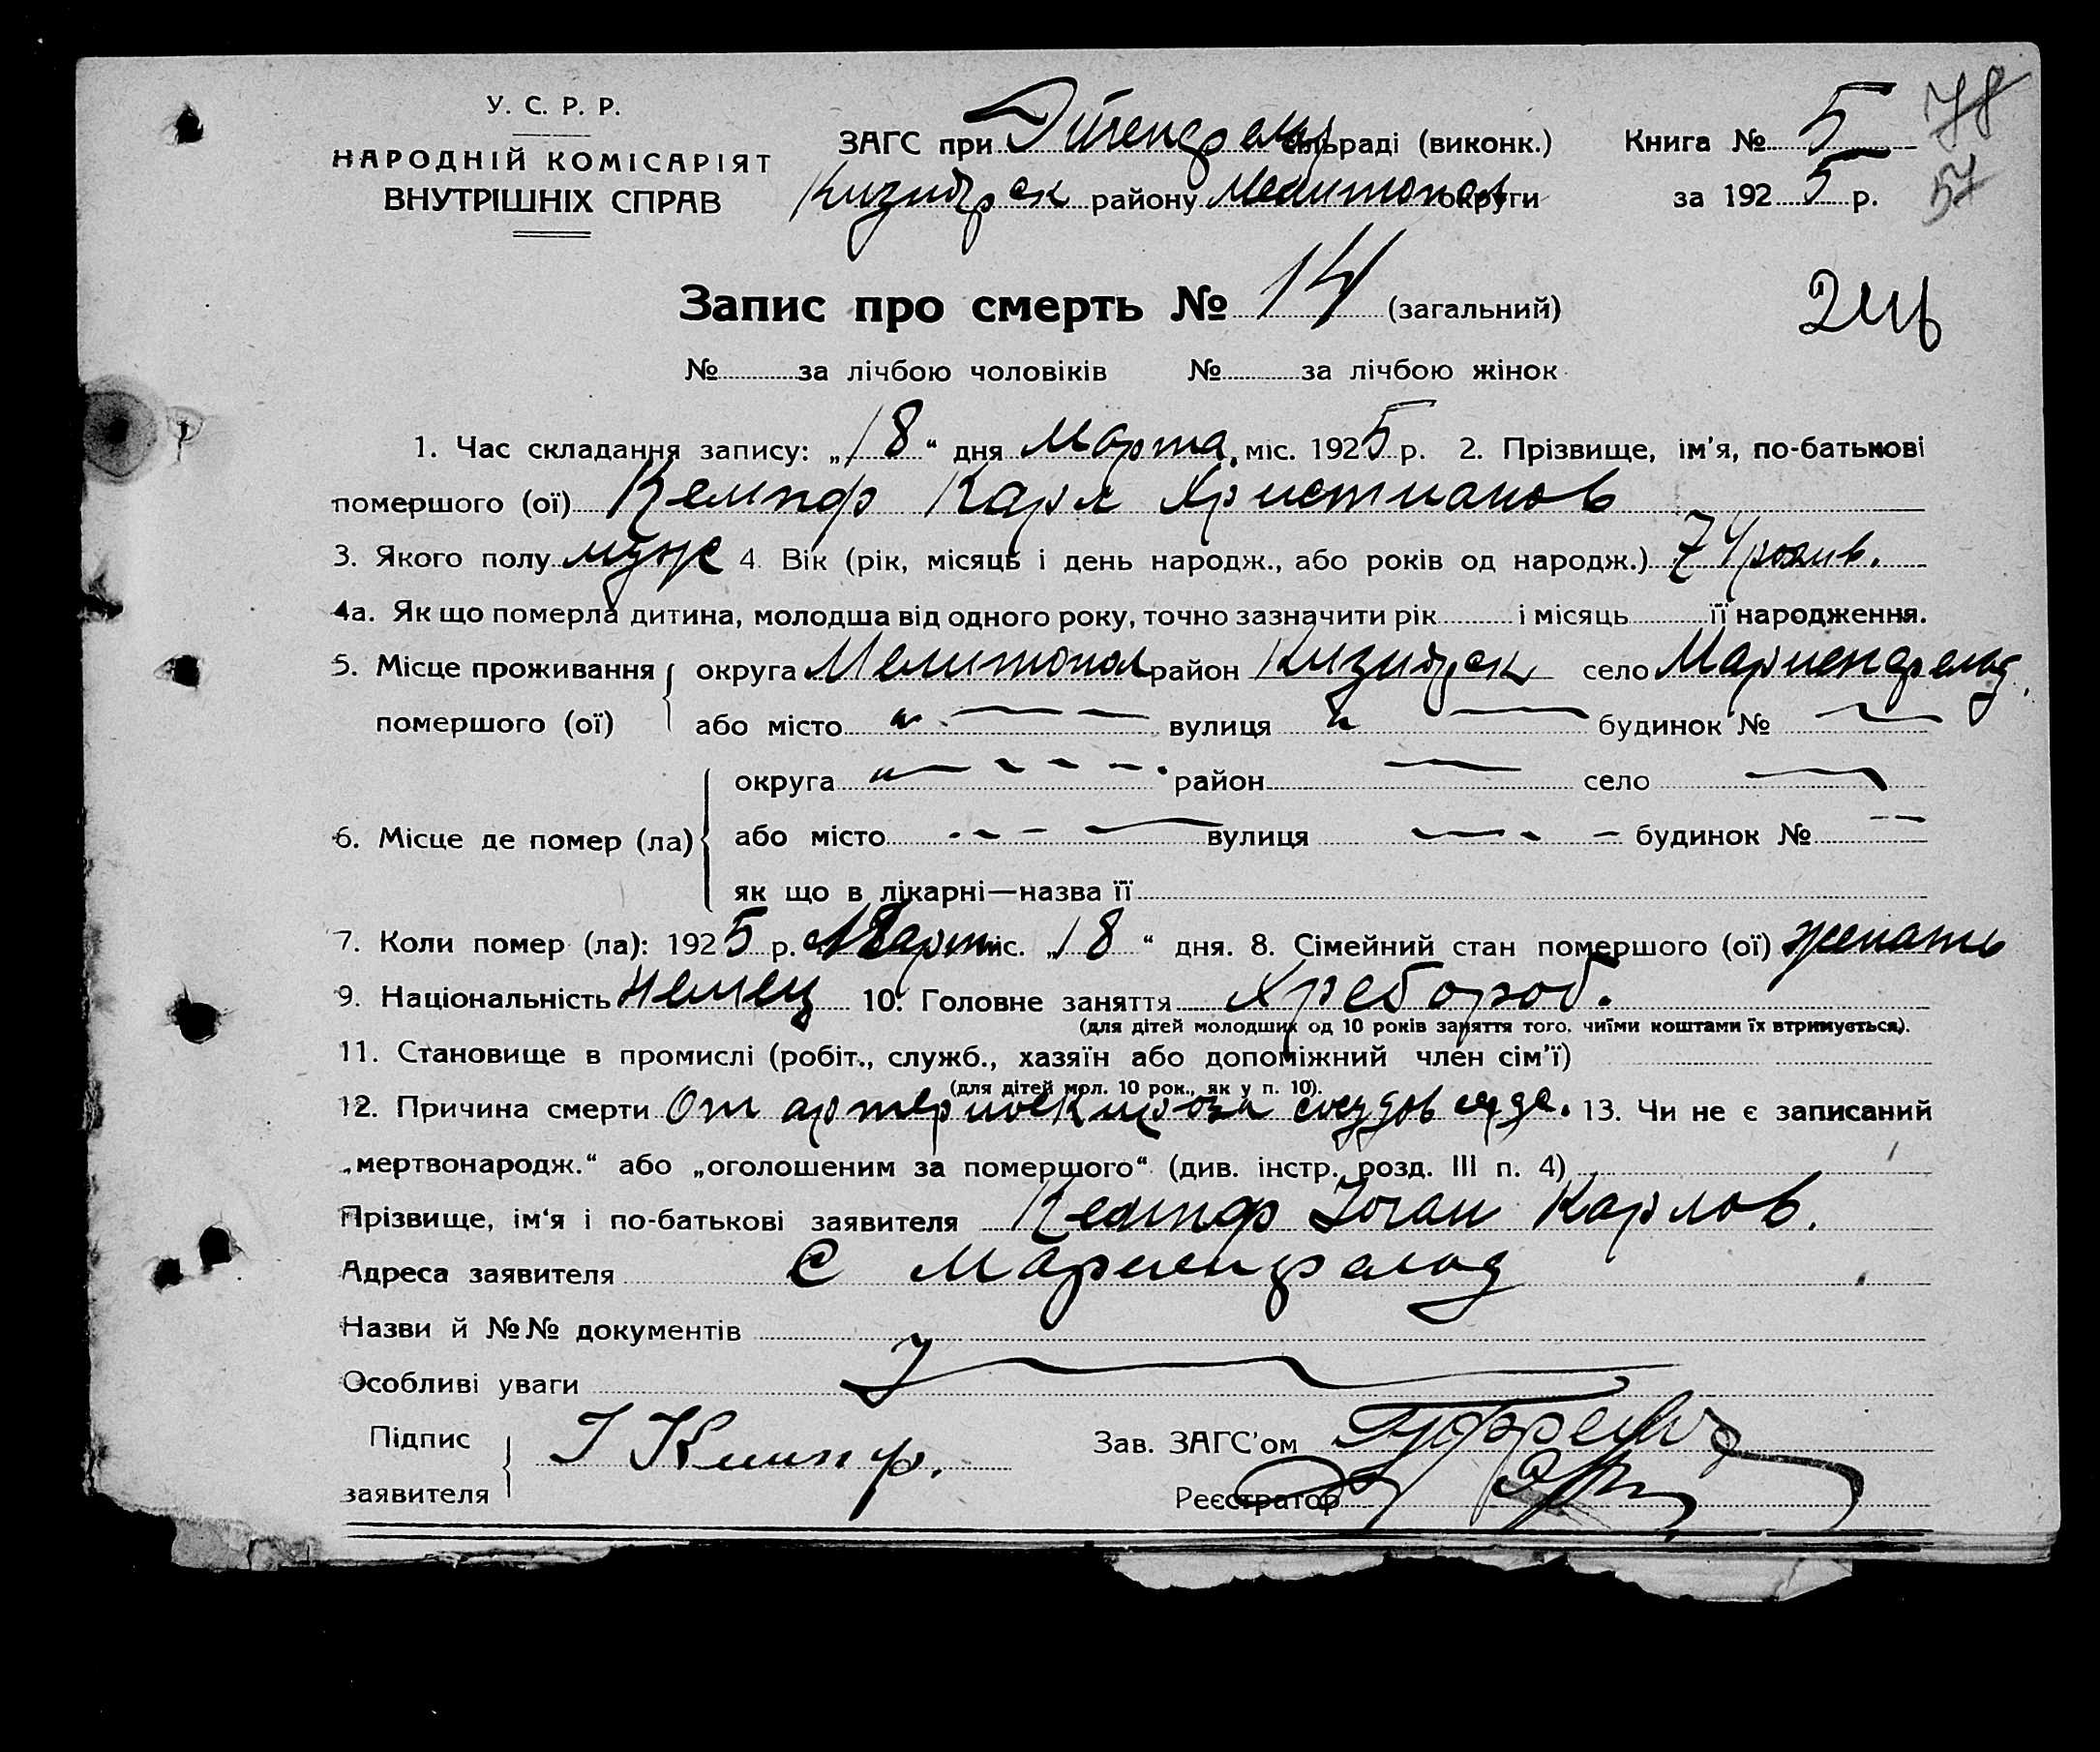 У. С. Р. Р.
НАРОДНІЙ КОМІСАРІЯТ
ВНУТРІШНІХ СПРАВ
ЗАГС при сільраді (виконк.)
району Мелитопол округи
Книга № 5
за 192 5 р.
78
57
Запис про смерть № 14 (загальний)
№ за лічбою чоловіків № за лічбою жінок
1. Час складання запису: „18“ дня Марта міс. 1925 р. 2. Прізвище, ім'я, по-батькові
помершого (ої) Кемпф Карл Христианов
3. Якого полу муж 4. Вік (рік, місяць і день народж., або років од народж.) 74
4а. Як що померла дитина, молодша від одного року, точно зазначити рік і місяць її народження.
5. Місце проживання округа Мелитопол район село Мариенфельд
помершого (ої) або місто вулиця будинок №
округа район село
6. Місце де помер (ла) або місто вулиця будинок №
як що в лікарні—назва її
7. Коли помер (ла): 1925 р. Март міс. „18“ дня. 8. Сімейний стан помершого (ої) женать
9. Національність Немец 10. Головне заняття Хребороб.
(для дітей молодших од 10 років заняття того, чиїми коштами їх втримується).
11. Становище в промислі (робіт., служб., хазяїн або допоміжний член сім'ї)
(для дітей мол. 10 рок., як у п. 10).
12. Причина смерти От сосудов 13. Чи не є записаний
„мертвонародж.“ або „оголошеним за помершого“ (див. інстр. розд. III п. 4)
Прізвище, ім'я і по-батькові заявителя Кемпф Іоган Карлов.
Адреса заявителя С Мариенфельд
Назви й №№ документів
Особливі уваги
Підпис
заявителя
І Кемпф.
Зав. ЗАГС'ом
Реєстратор